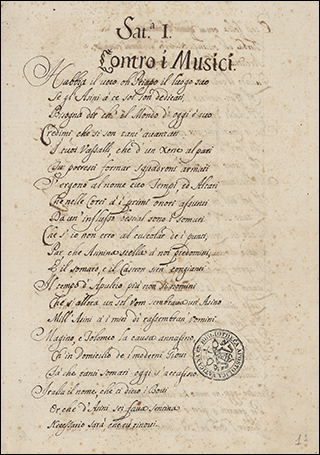 Sat.ª I.
Contro i Musici.
Habbia il vero oh Priapo il luogo suo
Se gl'Asini à te sol son dedicati,
Bisogna dir ch'il Mondo d'oggi è tuo
Credimi che si son tant'avanzati
I tuoi Vassalli, che d'un Xerse al pari
Tu potresti formar squadroni armati
S'ergono al nome tuo Tempî, ed Altari
Che nelle Corti à i primi onori assunti
Da un' influsso bestial sono i somari
Che s'io non erro al calcolar de i punti,
Par, ch'Asinina stella à noi predomini,
E il somaro, e il Castron sien congiunti
Il tempo d'Apuleio più non si nomini
Che s'allora un sol Uom sembrava un Asino
Mill' Asini à i miei dì rassembran Uomini
Magino, e Tolomeo la causa annasino,
Chi in domicilio de i moderni Giovi
Fà che tanti somati oggi s'accasino
Avala il nome, che ti diero i Boiti
Or che d'Asini sei fatta sentina
Necessario sarà che tu rinovi.
BIBLIOTHECA APOSTOLICA VATICANA
1